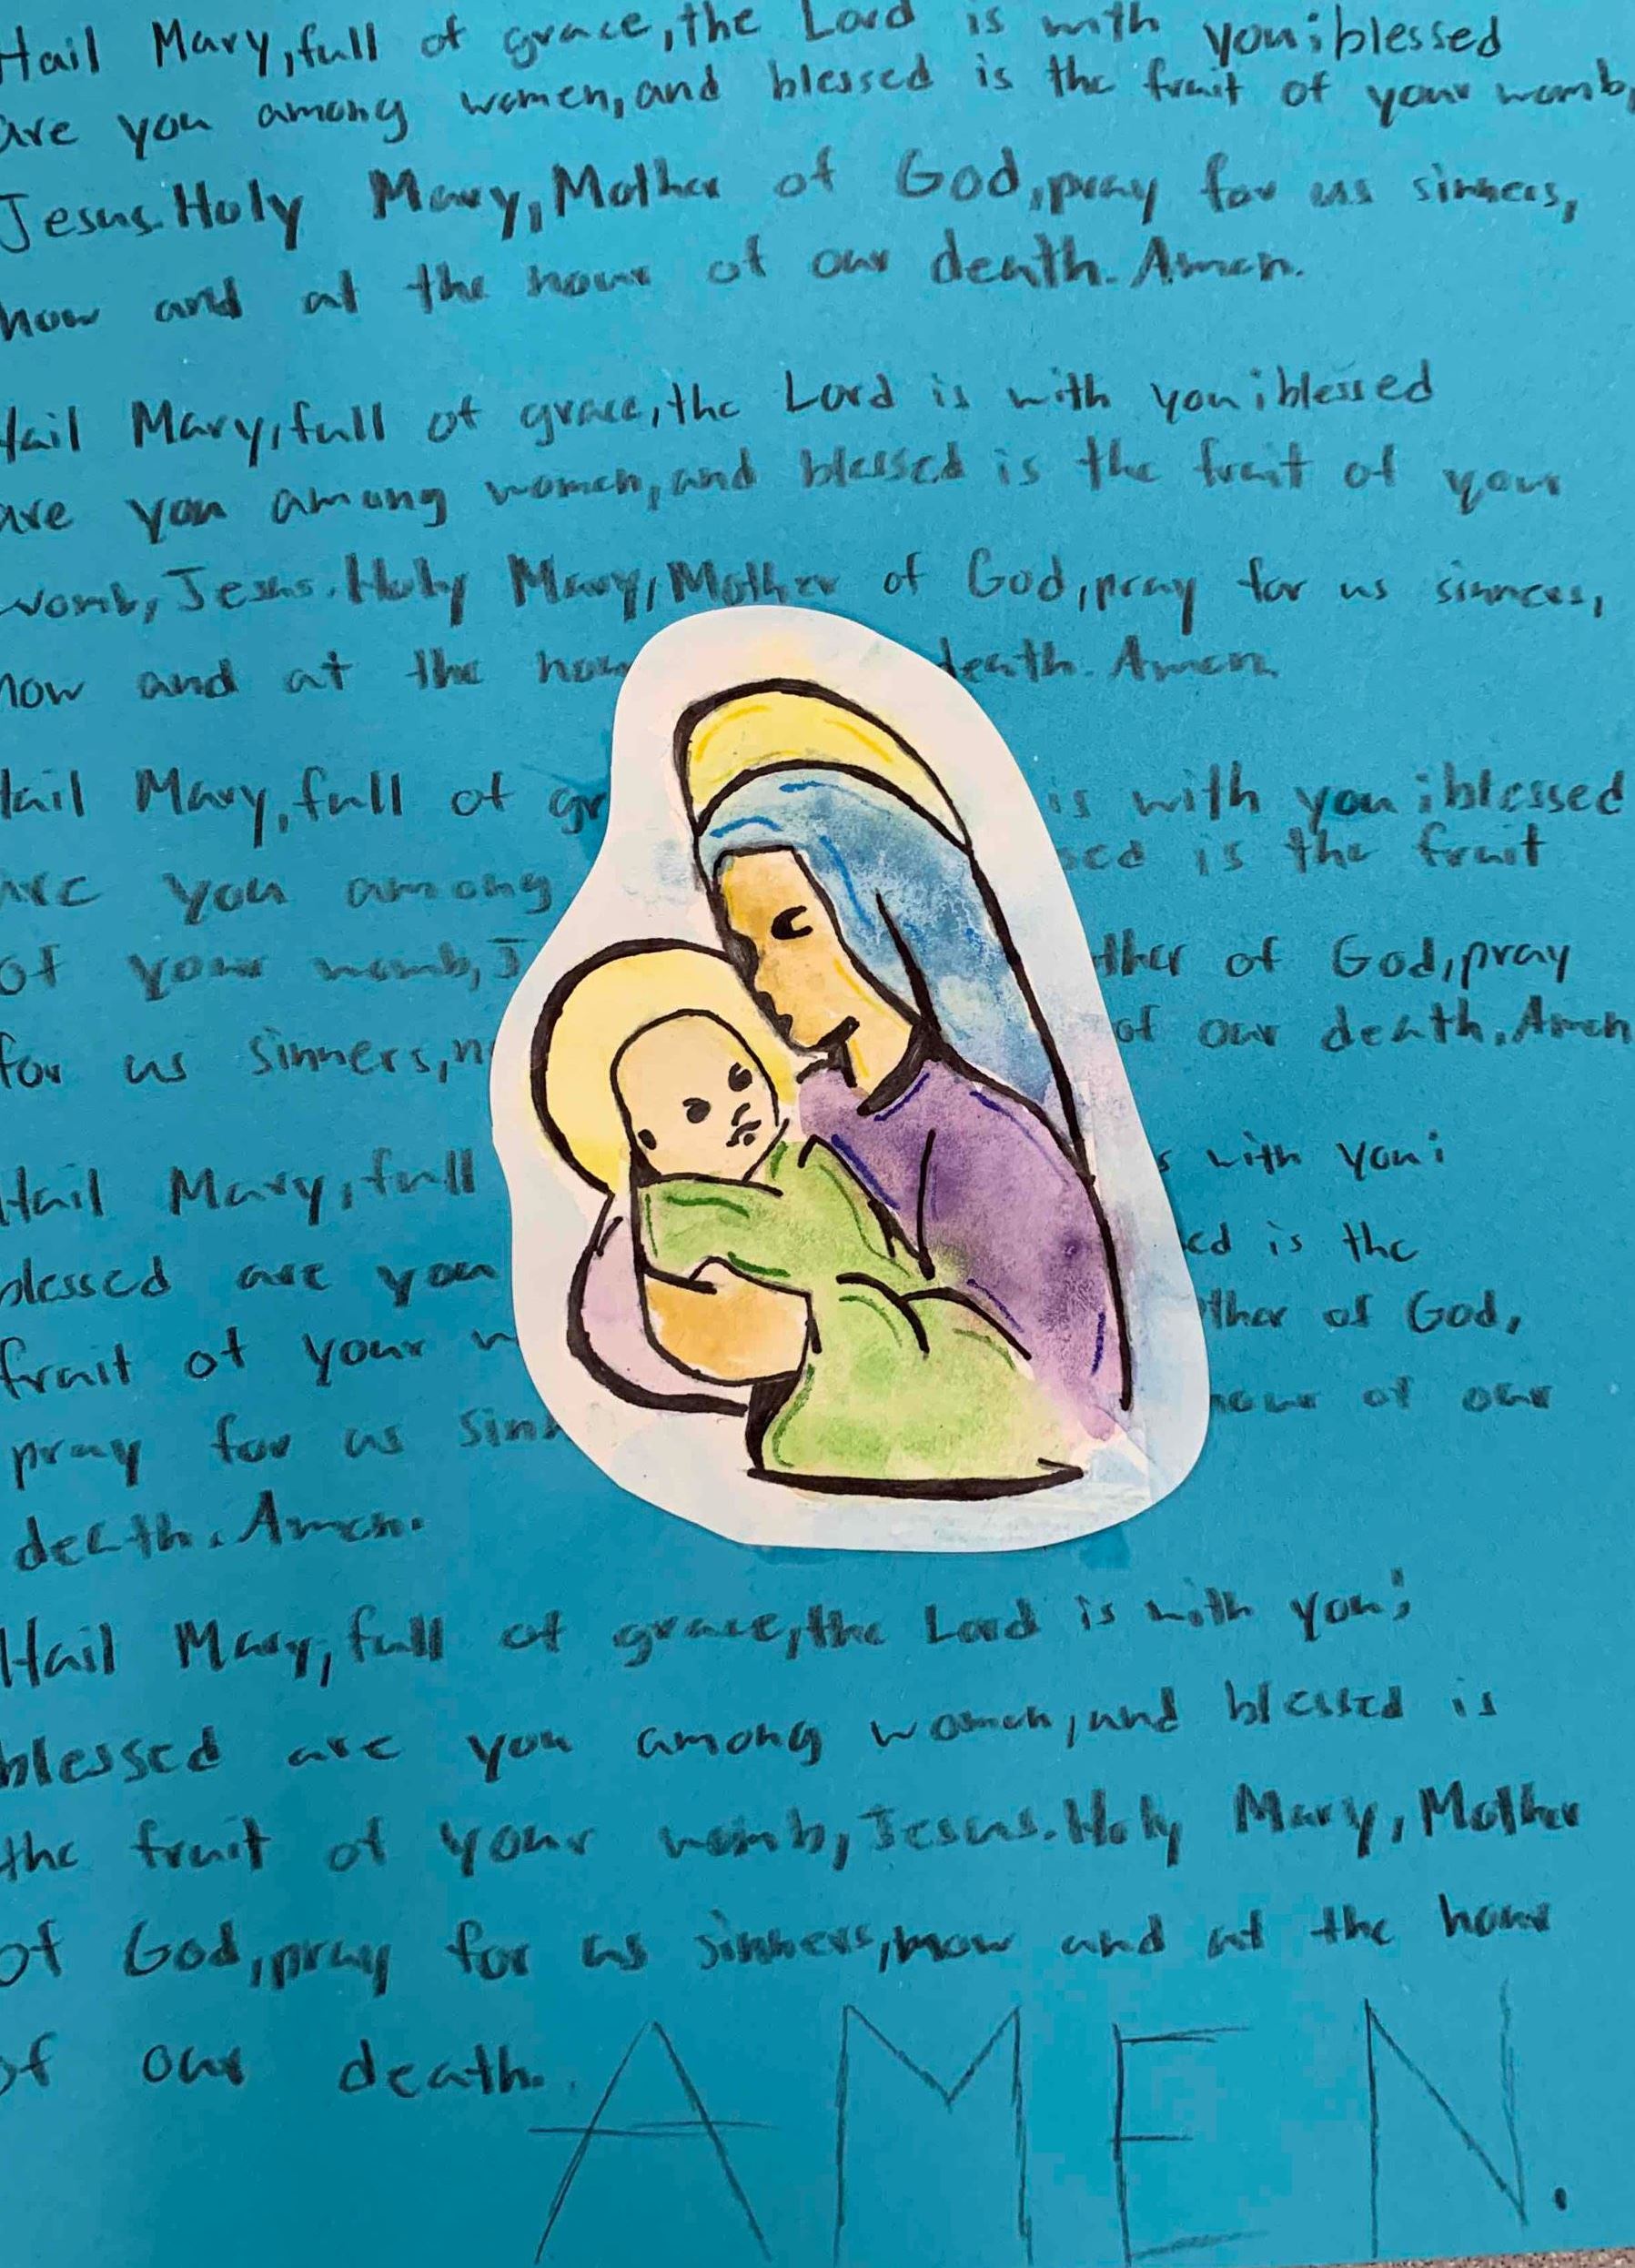 Hail Mary, full of grace, the Lord is with you; blessed
are you among women, and blessed is the fruit of your womb,
Jesus. Holy Mary, Mother of God, pray for us sinners,
now and at the hour of our death. Amen.
Hail Mary, full of grace, the Lord is with you; blessed
are you among women, and blessed is the fruit of your
womb, Jesus. Holy Mary, Mother of God, pray for us sinners,
now and at the death. Amen.
Hail Mary, full of is with you; blessed
are you among is the fruit
of your womb, of God, pray
for us sinners, of our death. Amen
Hail Mary, full with you;
blessed are you is the
fruit of your of God,
pray for us of our
death. Amen.
Hail Mary, full of grace, the Lord is with you;
blessed are you among women, and blessed is
the fruit of your womb, Jesus. Holy Mary, Mother
of God, pray for us sinners, now and at the hour
of our death. AMEN.